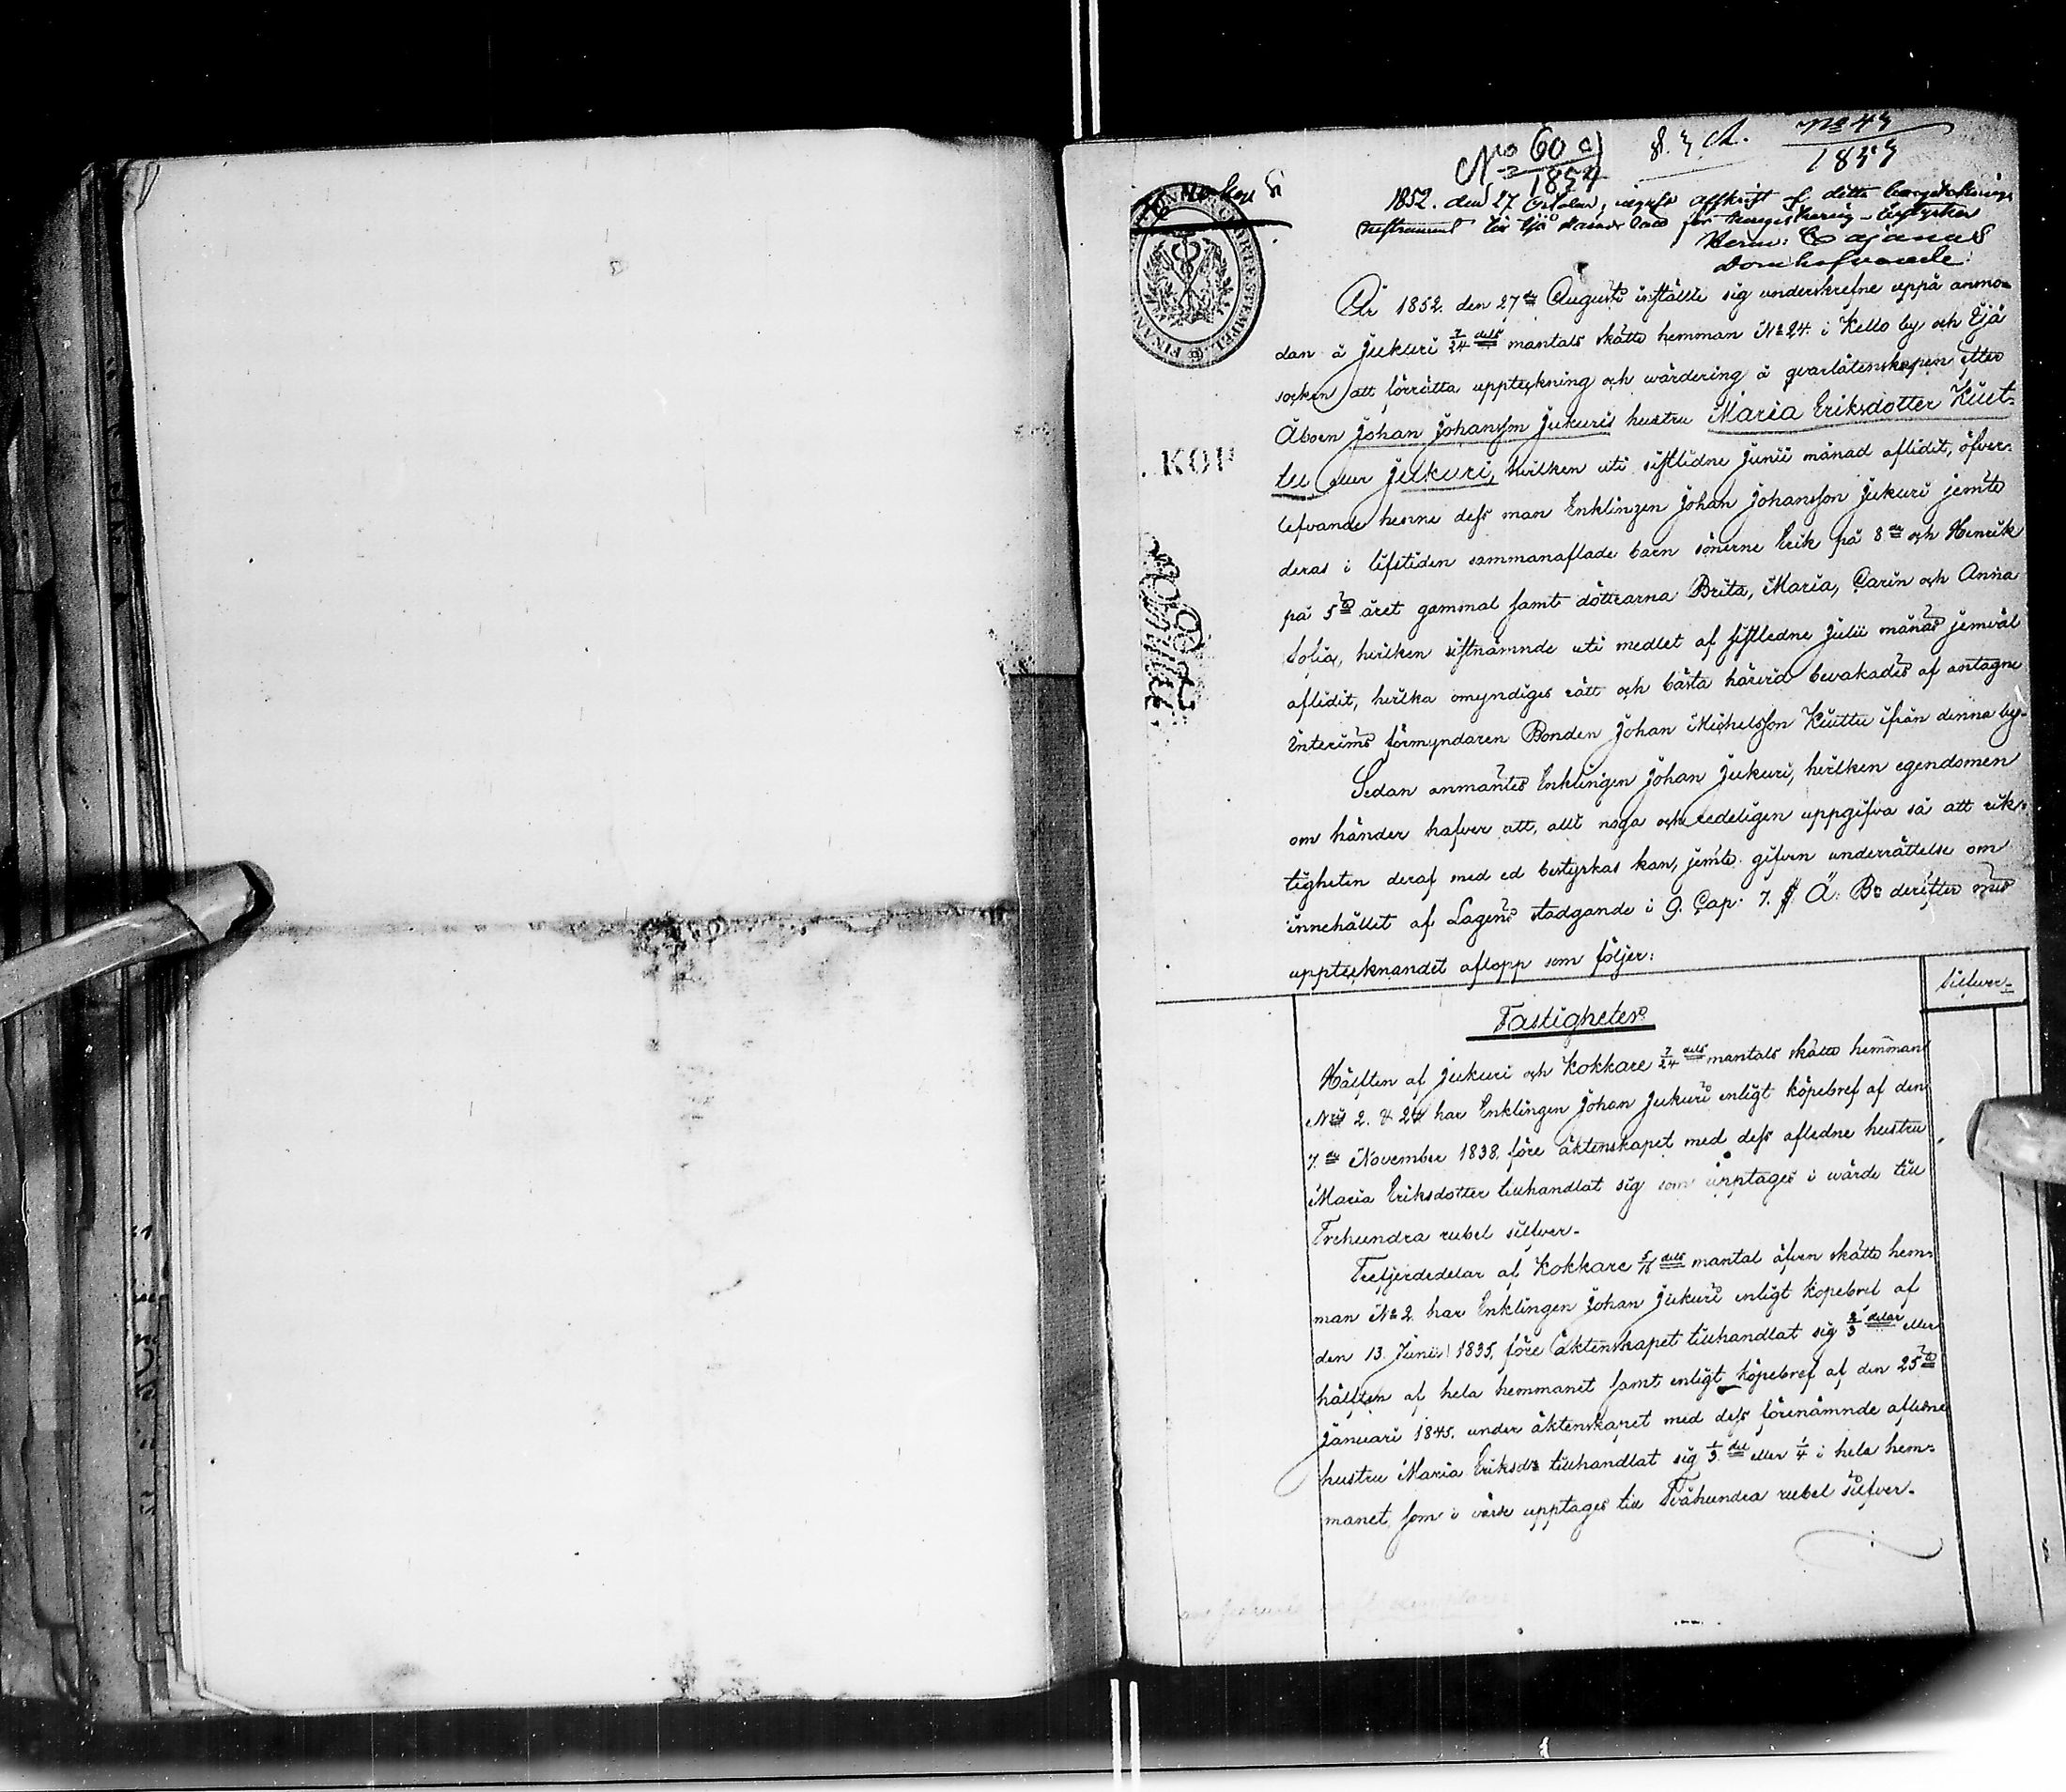 No 60 c)
1854
§. 3 A.
No 43
1853
1852. den 27 October, ingafs affskrift af detta
för Ijo
Herm: Cajanus
Domhafvande.
KOP
År 1852 den 27de Augusti inställte sig underskrefne uppå anmo-
dan å Jukuri 7/24 dels mantals skatte hemman No 24. i Kello by och Ijå
socken att förrätta uppteckning och wärdering å qvarlåtenskapen efter
Åboen Johan Johansson Jukuris hustru Maria Eriksdotter Kiut-
tu eller Jukuri, hvilken uti sistlidne Junii månad aflidit, öfver-
lefvande henne dess man Enklingen Johan Johansson Jukuri jemte
deras i lifstiden sammanaflade barn sönerne Erik på 8de och Henrik
på 5te året gammal samt döttrarna Brita, Maria, Carin och Anna
Sofia, hvilken sistnämnde uti medlet af sistledne Julii månad jemväl
aflidit, hvilka omyndiges rätt och bästa härvid bevakades af antagne
Interims förmyndaren Bonden Johan Michelsson Kiuttu ifrån denna by.
Sedan anmantes Enklingen Johan Jukuri, hvilken egendomen
om händer hafver att, allt noga och redeligen uppgifva så att rik-
tigheten deraf med ed bestyrkas kan, jemte gifven underrättelse om
innehållet af Lagens stadgande i 9. Cap. 7. § Ä. B: derefter med
upptecknandet aflopp som följer:
Silfver.
Fastigheter.
Hälften af Jukuri och Kokkare 7/24 dels mantals skatte hemman
No 2. & 24 har Enklingen Johan Jukuri enligt köpebref af den
7.de November 1838. före äktenskapet med dess afledne hustru
Maria Eriksdotter tillhandlat sig som upptages i wärde till
Trehundra rubel silfver.
Trefjerdedelar af Kokkare 5/16 dels mantal äfven skatte hem-
man No 2 har Enklingen Johan Jukuri enligt köpebref af
den 13. Junii 1835, före äktenskapet tillhandlat sig 2/3 delar eller
hälften af hela hemmanet samt enligt köpebref af den 25te
Januari 1845. under äktenskapet med dess förenämnde afledne
hustru Maria Eriksdr tillhandlat sig 1/3 del eller 1/4 i hela hem-
manet, som i värde upptages till Tvåhundra rubel silfver.